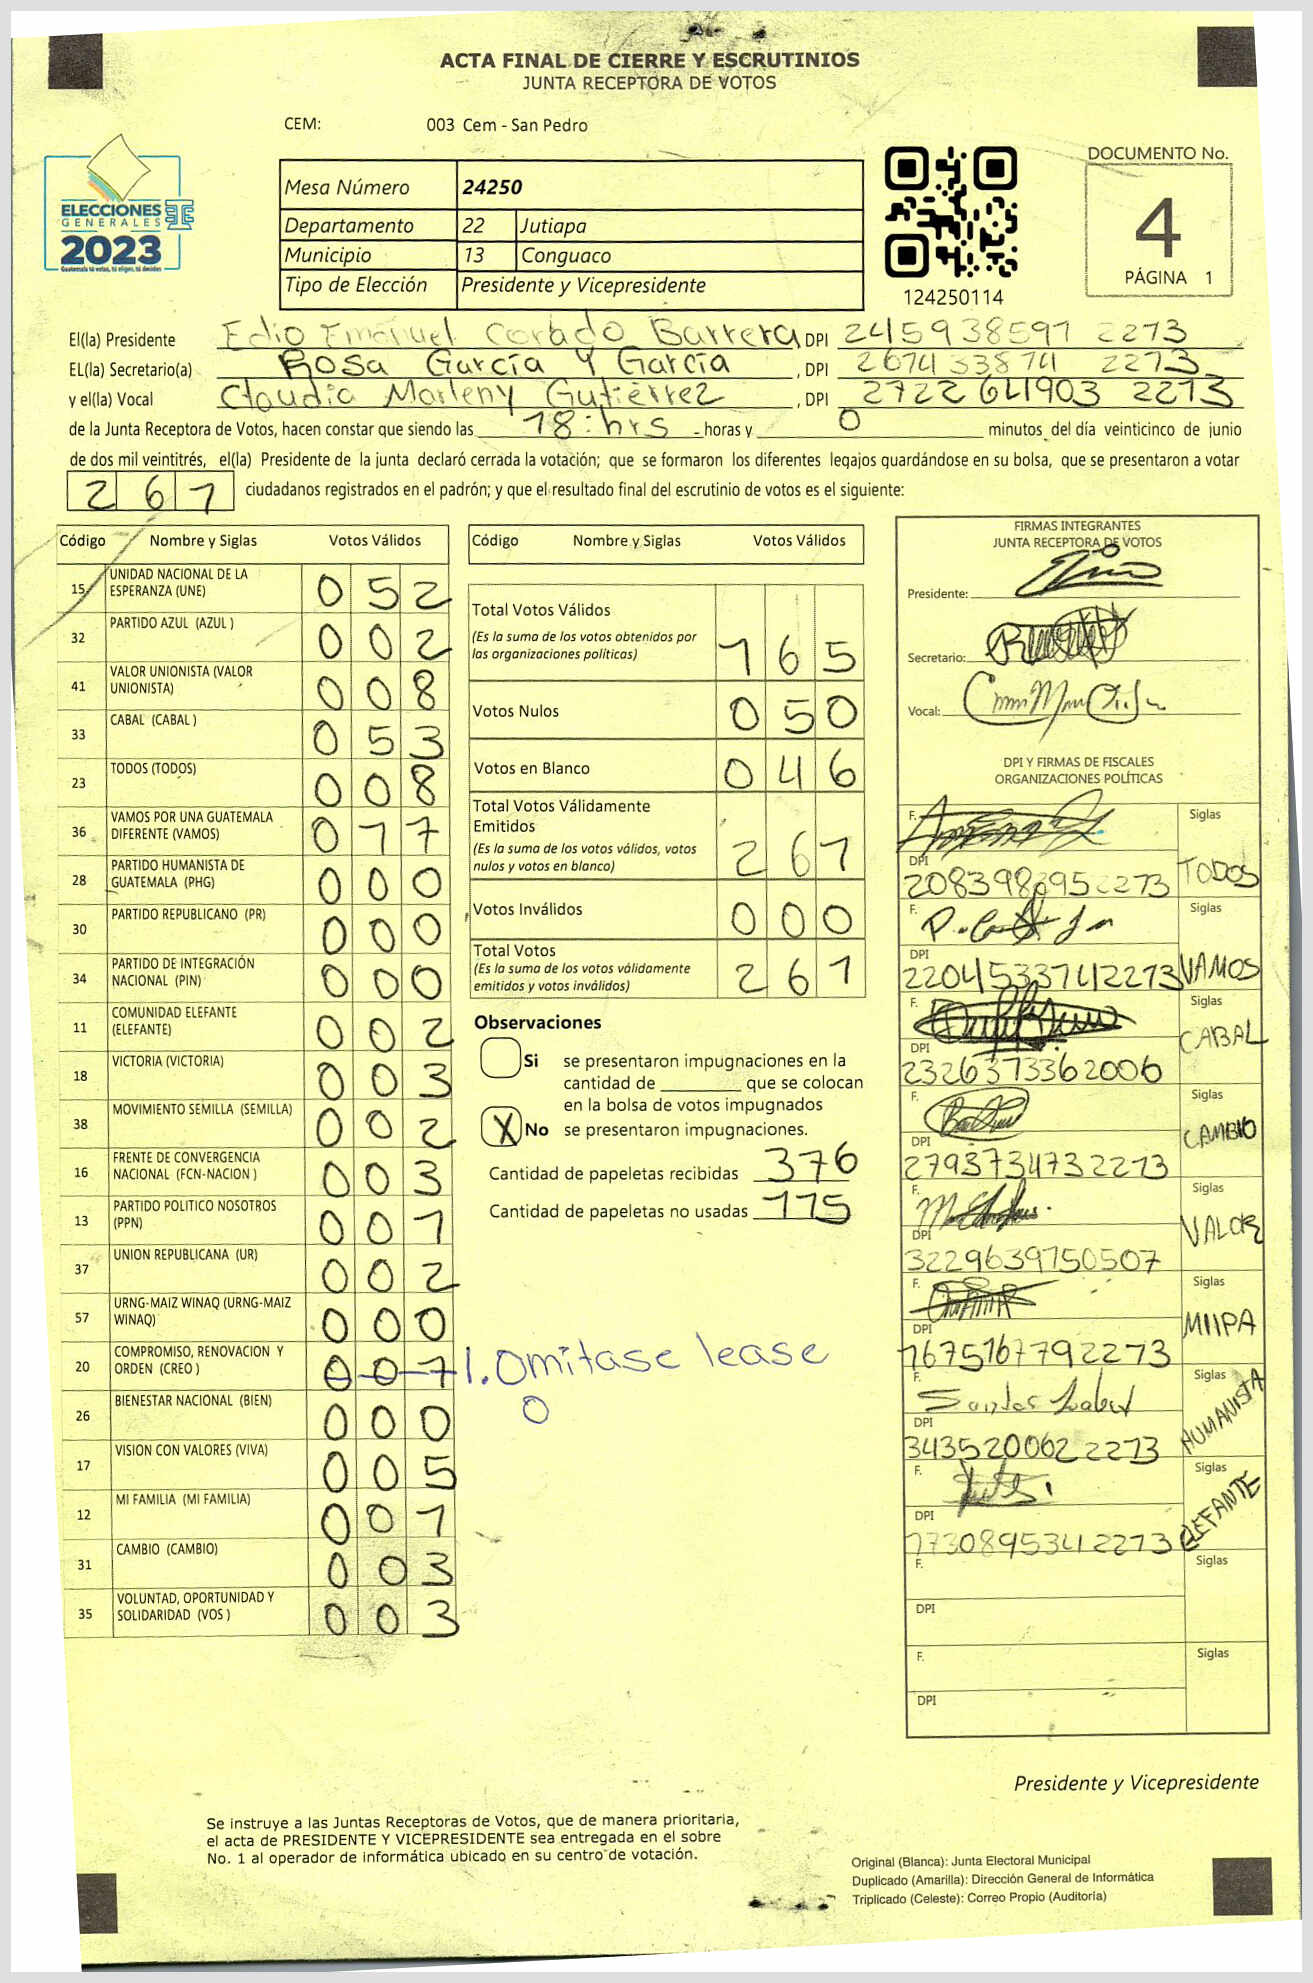 ACTA FINAL DE CIERRE Y ESCRUTINIOS
JUNTA RECEPTORA DE VOTOS
CEM: 003 Cem - San Pedro
ELECCIONES
GENERALES
2023
Guatemala tú votas, tú eliges, tú decides
Mesa Número 24250
Departamento 22 Jutiapa
Municipio 13 Conguaco
Tipo de Elección Presidente y Vicepresidente
124250114
DOCUMENTO No.
4
PÁGINA 1
El(la) Presidente Edio Emanuel Corado Barrera, DPI 245938597 2273
EL(la) Secretario(a) Rosa García Y García, DPI 267433874 2273
y el(la) Vocal Claudia Marleny Gutiérrez, DPI 2722641903 2273
de la Junta Receptora de Votos, hacen constar que siendo las 18:hrs horas y 0 minutos del día veinticinco de junio
de dos mil veintitrés, el(la) Presidente de la junta declaró cerrada la votación; que se formaron los diferentes legajos guardándose en su bolsa, que se presentaron a votar
261 ciudadanos registrados en el padrón; y que el resultado final del escrutinio de votos es el siguiente:
Código Nombre y Siglas Votos Válidos
15 UNIDAD NACIONAL DE LA ESPERANZA (UNE) 052
32 PARTIDO AZUL (AZUL ) 002
41 VALOR UNIONISTA (VALOR UNIONISTA) 008
33 CABAL (CABAL ) 053
23 TODOS (TODOS) 008
36 VAMOS POR UNA GUATEMALA DIFERENTE (VAMOS) 017
28 PARTIDO HUMANISTA DE GUATEMALA (PHG) 000
30 PARTIDO REPUBLICANO (PR) 000
34 PARTIDO DE INTEGRACIÓN NACIONAL (PIN) 000
11 COMUNIDAD ELEFANTE (ELEFANTE) 002
18 VICTORIA (VICTORIA) 003
38 MOVIMIENTO SEMILLA (SEMILLA) 002
16 FRENTE DE CONVERGENCIA NACIONAL (FCN-NACION ) 003
13 PARTIDO POLITICO NOSOTROS (PPN) 001
37 UNION REPUBLICANA (UR) 002
57 URNG-MAIZ WINAQ (URNG-MAIZ WINAQ) 000
20 COMPROMISO, RENOVACION Y ORDEN (CREO ) 001 1. Omitase lease
0
26 BIENESTAR NACIONAL (BIEN) 000
17 VISION CON VALORES (VIVA) 005
12 MI FAMILIA (MI FAMILIA) 001
31 CAMBIO (CAMBIO) 003
35 VOLUNTAD, OPORTUNIDAD Y SOLIDARIDAD (VOS ) 003
Código Nombre y Siglas Votos Válidos
Total Votos Válidos
(Es la suma de los votos obtenidos por
las organizaciones políticas) 165
Votos Nulos 050
Votos en Blanco 046
Total Votos Válidamente
Emitidos
(Es la suma de los votos válidos, votos
nulos y votos en blanco) 261
Votos Inválidos 000
Total Votos
(Es la suma de los votos válidamente
emitidos y votos inválidos) 261
Observaciones
Si se presentaron impugnaciones en la
cantidad de ________ que se colocan
en la bolsa de votos impugnados
X No se presentaron impugnaciones.
Cantidad de papeletas recibidas 376
Cantidad de papeletas no usadas 115
FIRMAS INTEGRANTES
JUNTA RECEPTORA DE VOTOS
Presidente:
Secretario:
Vocal:
DPI Y FIRMAS DE FISCALES
ORGANIZACIONES POLÍTICAS
F. Siglas
DPI TODOS
F. Siglas
DPI 2204533742273 VAMOS
F. Siglas
DPI 2326373362006 CABAL
F. Siglas
DPI 2793734732273 CAMBIO
F. Siglas
DPI 3229639750507 VALOR
F. Siglas
DPI 1675167792273 MIIPA
F. Siglas
DPI 3435200622273 HUMANISTA
F. Siglas
DPI 1730895342273 ELEFANTE
F. Siglas
DPI
F. Siglas
DPI
Presidente y Vicepresidente
Se instruye a las Juntas Receptoras de Votos, que de manera prioritaria,
el acta de PRESIDENTE Y VICEPRESIDENTE sea entregada en el sobre
No. 1 al operador de informática ubicado en su centro de votación.
Original (Blanca): Junta Electoral Municipal
Duplicado (Amarilla): Dirección General de Informática
Triplicado (Celeste): Correo Propio (Auditoría)